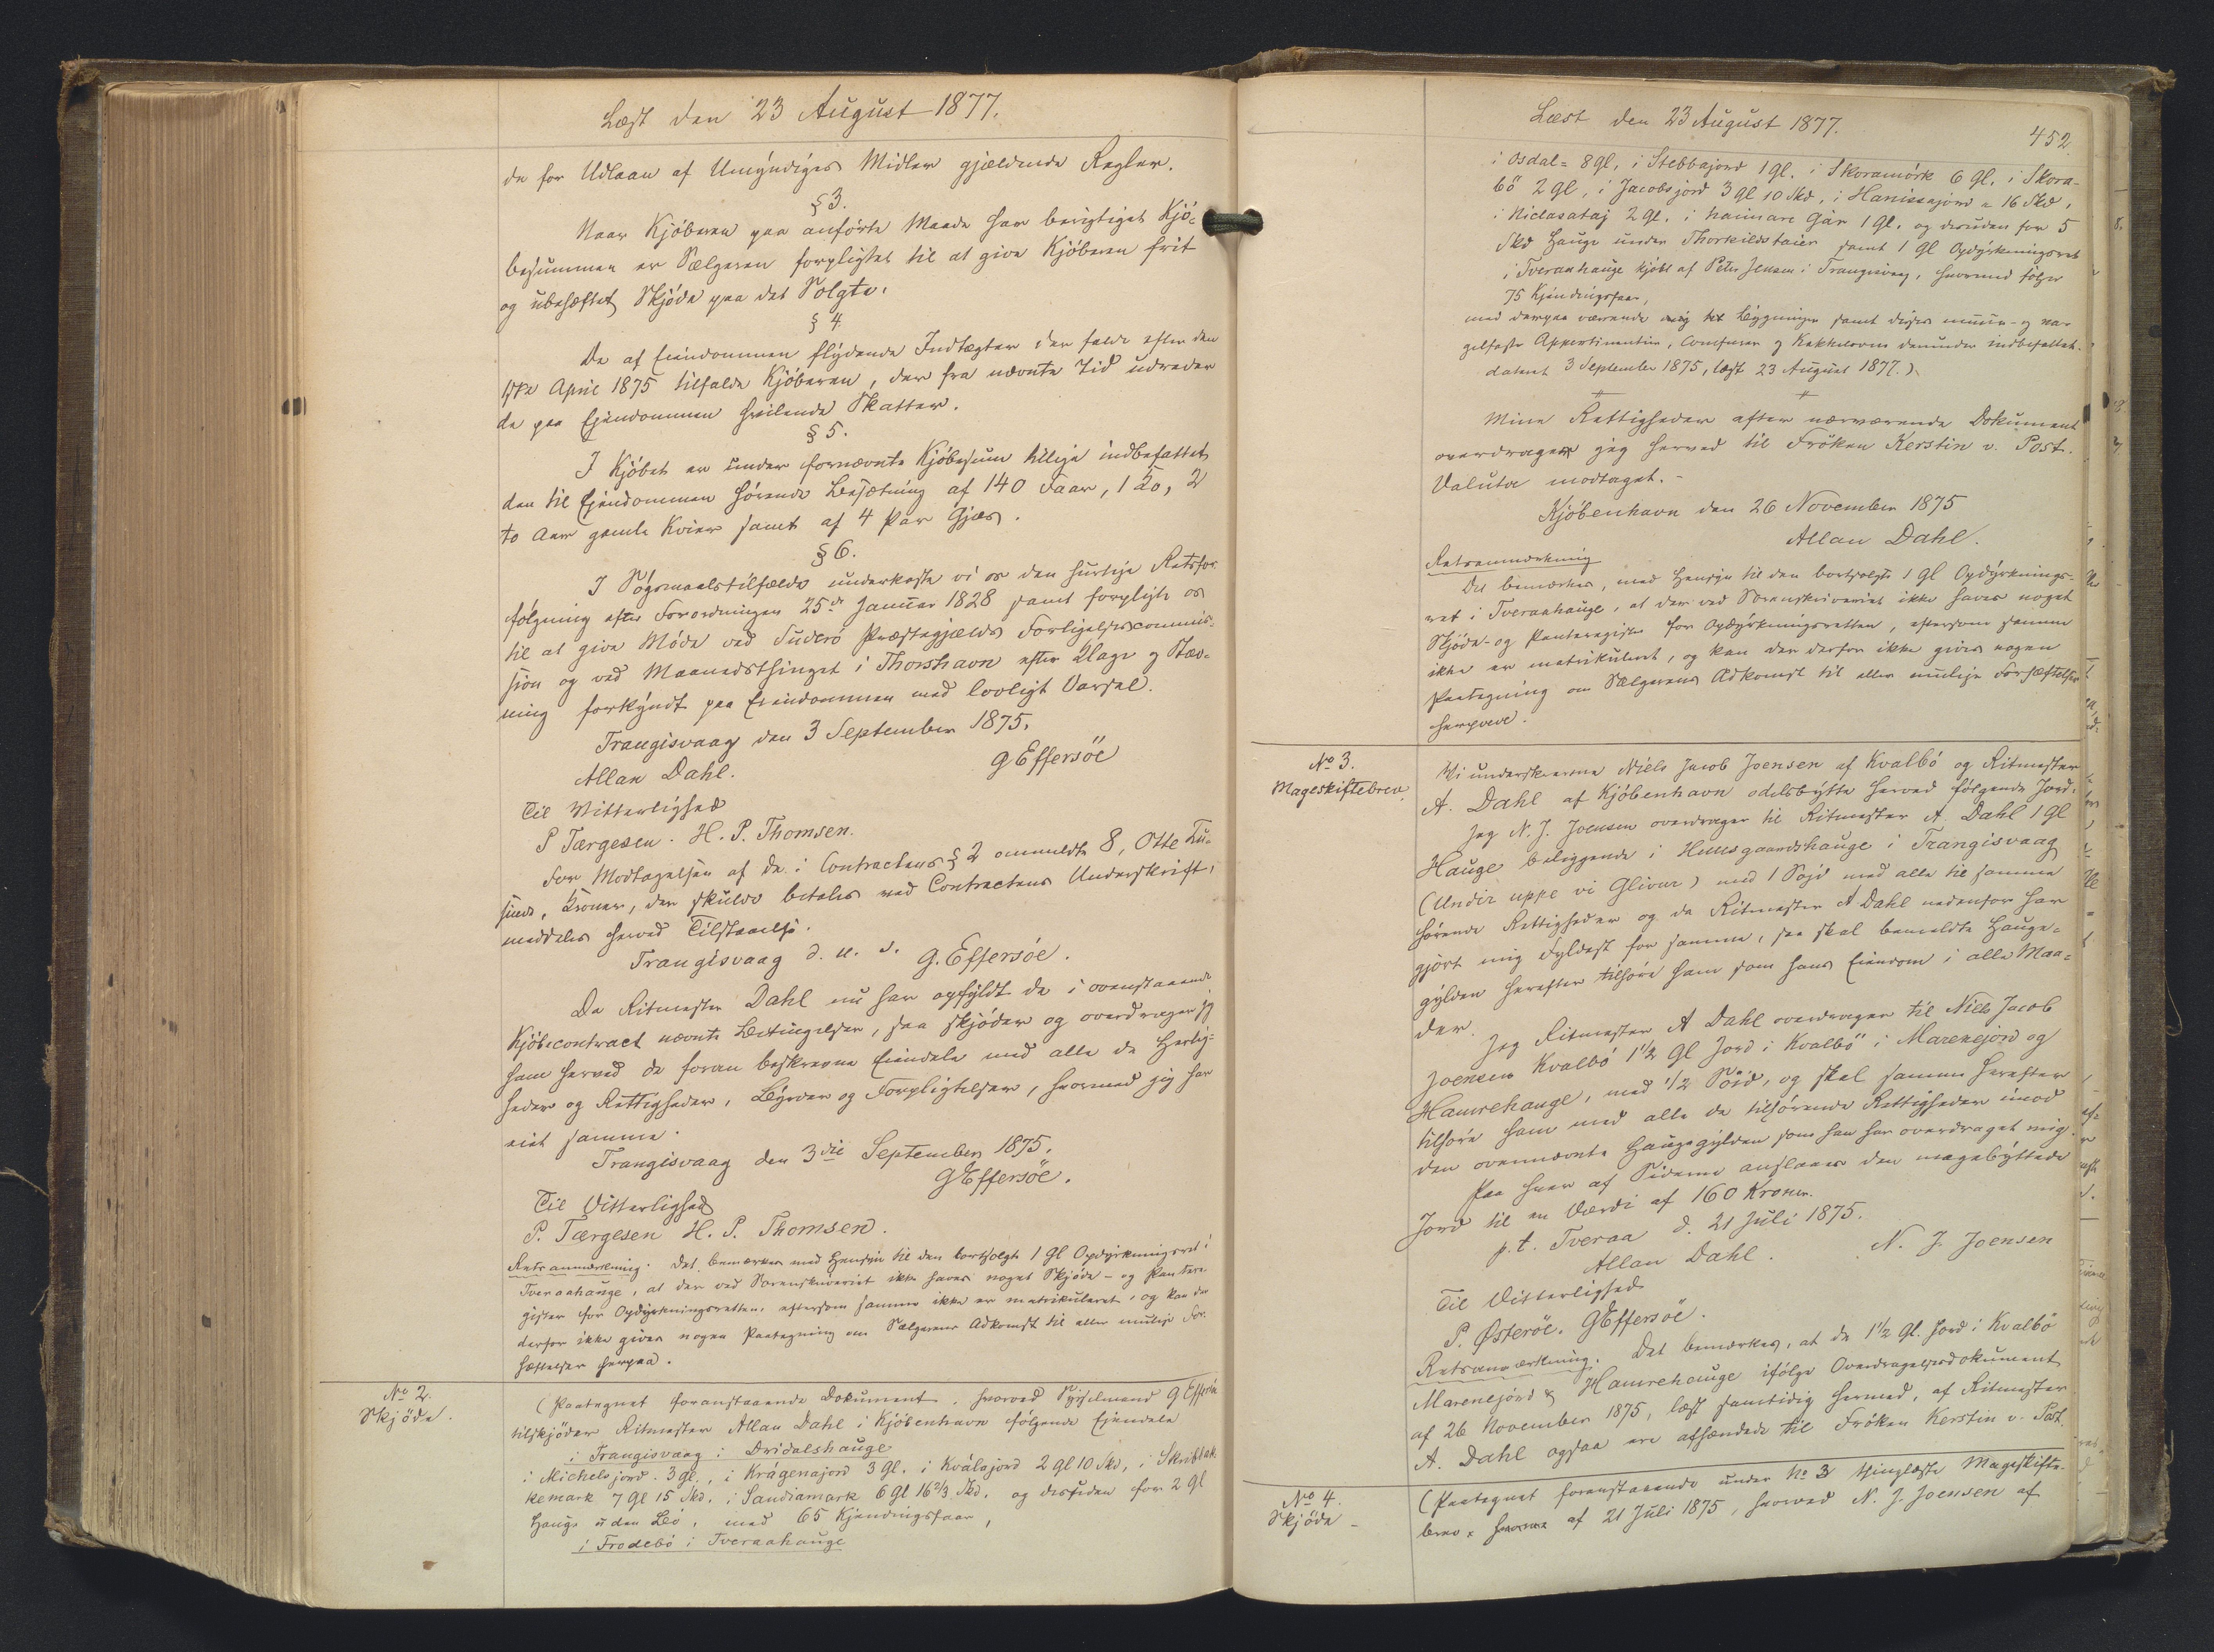 Læst den 23 August 1877.
de for Udlaan af Umyndiges Midler gjældende Regler.
§ 3.
Naar Kjøberen paa anførte Maade har berigtiget Kjø-
besummen er Sælgeren forpligtet til at give Kjøberen frit
og ubehæftet Skjøde paa det Solgte.
§ 4.
De af Eiendommen flydende Indtægter der falde efter den
1ste April 1875 tilfalde Kjøberen, der fra nævnte Tid udreder
de paa Ejendommen hvilende Skatter.
§ 5.
I Kjøbet er under fornævnte Kjøbesum tillige indbefattet
den til Ejendommen hørende Besætning af 140 Faar, 1 Ko, 2
to Aar gamle Kvier samt af 4 Par Gjæs.
§ 6.
I Søgsmaalstilfælde underkaste vi os den hurtige Retsfor-
følgning efter Forordningen 25de Januar 1828 samt forpligte os
til at give Møde ved Suderø Præstegjælds Forligelsescommis-
sion og ved Maanedsthinget i Thorshavn efter Klage og Stæv-
ning forkyndt paa Eiendommen med lovligt Varsel.
Trangisvaag den 3 September 1875.
Allan Dahl.
G Effersöe
Til Vitterlighed
P Tærgesen. H. P. Thomsen.
For Modtagelsen af de i Contractens § 2 ommeldte 8, Otte Tu-
sinde, Kroner, der skulde betales ved Contractens Underskrift,
meddeles herved Tilstaaelse.
Trangisvaag d. u. s.
G. Effersöe.
Da Ritmester Dahl nu har opfyldt de i ovenstaaende
Kjöbecontract nævnte Betingelser, saa skjøder og overdrager jeg
ham herved de foran beskrevne Eiendele med alle de Herlig-
heder og Rettigheder, Byrder og Forpligtelser, hvormed jeg har
eiet samme.
Trangisvaag den 3die September 1875.
G Effersöe.
Til Vitterlighed
P. Tærgesen H. P. Thomsen.
Retsanmærkning. Det bemærkes med Hensyn til den bortsolgte 1 Gl Opdyrkningsret i
Tveraahauge, at der ved Sorenskriveriet ikke haves noget Skjøde- og Pantere-
gister for Opdyrkningsretten, eftersom samme ikke er matrikuleret, og kan der
derfor ikke gives nogen Paategning om Sælgerens Adkomst til eller mulige For-
hæftelser herpaa.
No 2.
Skjöde.
(Paategnet foranstaaende Dokument, hvorved Sysselmand G Effersöe
tilskjøder Ritmester Allan Dahl i Kjøbenhavn følgende Ejendele
i Trangisvaag i Dridalshauge
i Michelsjord 3 gl., i Krágenajord 3 Gl. i Kválajord 2 gl 10 Skd, i Skribbak-
kemark 7 Gl 15 Skd. i Sandiamark 6 Gl 16 2/3 Skd. og desuden for 2 Gl
Hauge uden Bø, med 65 Kjendingsfaar,
i Frodebö i Tveraahauge
Læst den 23 August 1877.
452.
i Osdal= 8 gl, i Stebbajord 1 gl. i Skoramörk 6 gl. i Skora-
bö 2 gl, i Jacobsjord 3 gl 10 Skd, i Hanissajord = 16 Skd,
i Niclasataj 2 gl. i haimare Gár 1 gl. og desuden for 5
Skd Hauge under Thorkildstaier samt 1 Gl Opdyrkningsret
i Tveraahauge kjöbt af Peter Jensen i Trangisvaag, hvormed følger
75 Kjendingsfaar,
med derpaa værende Bygninger samt disses muur- og na-
gelfaste Appertinentier, Comfurer og Kakkelovne derunder indbefattet.
dateret 3 September 1875, læst 23 August 1877.)
Mine Rettigheder efter nærværende Dokument
overdrager jeg herved til Fröken Kerstin v. Post.
Valuta modtaget.-
Kjøbenhavn den 26 November 1875
Allan Dahl.
Retsanmærkning
Det bemærkes, med Hensyn til den bortsolgte 1 Gl Opdyrknings-
ret i Tveraahauge, at der ved Sorenskriveriet ikke haves noget
Skjöde- og Panteregister for Opdyrkningsretten, eftersom samme
ikke er matrikuleret, og kan der derfor ikke gives nogen
Paategning om Sælgerens Adkomst til eller mulige Forhæftelser
herpaa.
No 3.
Mageskiftebrev.
Vi underskrevne Niels Jacob Joensen af Kvalbö og Ritmester
A. Dahl af Kjöbenhavn odelsbytte herved følgende Jord:
Jeg N. J. Joensen overdrager til Ritmester A. Dahl 1 Gl
Hauge beliggende i Huusgaardshauge i Trangisvaag
(Undir uppe vi Glivur) med 1 Søjd med alle til samme
hørende Rettigheder og da Ritmester A Dahl nedenfor har
gjort mig Fyldest for samme, saa skal bemeldte Hauge-
gylden herefter tilhøre ham som hans Eiendom i alle Maa-
der.
Jeg Ritmester A Dahl overdrager til Niels Jacob
Joensen Kvalbö 1 1/2 Gl Jord i Kvalbö i Marenejord og
Hamrehauge, med 1/2 Søid, og skal samme herefter
tilhøre ham med alle de tilhørende Rettigheder imod
den ovennævnte Haugegylden som han har overdraget mig.
Paa hver af Siderne anslaaes den magebyttede
Jord til en Værdi af 160 Kroner.
p. t. Tveraa d. 21 Juli 1875.
Allan Dahl.
N. J. Joensen
Til Vitterlighed
P. Østeröe. G Effersöe.
Retsanmærkning. Det bemærkes, at de 1 1/2 Gl. Jord i Kvalbö
Marenejörd & Hamrehauge ifølge Overdragelsesdokument
af 26 November 1875, læst samtidig hermed, af Ritmester
A. Dahl ogsaa ere afhændede til Fröken Kerstin v. Post.
No 4.
Skjöde
(Paategnet foranstaaende under No 3 thinglæste Mageskifte-
brev af 21 Juli 1875, hvorved N. J. Joensen af